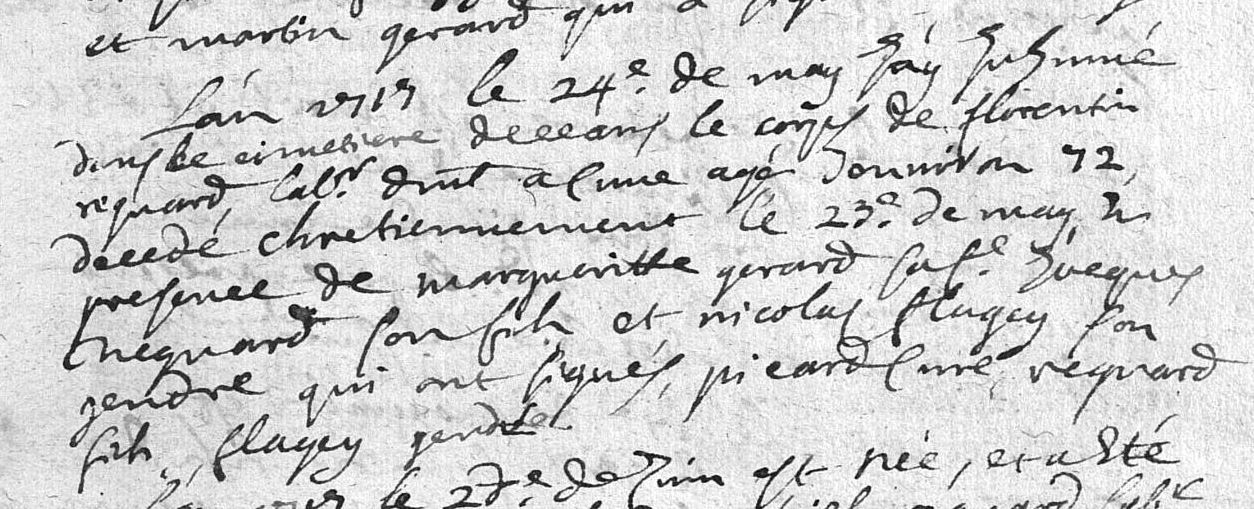 et martin gerard qui a
Lán 1717 le 24e. de may Jáy Juhumé
dans le cimetiere deceans le corps de florentin
requard, labr. agé Denviron 72,
decedé chretiennement le 23e. de may, En
presence de margueritte gerard sa fe. Jacques
Requard son fils et nicolas flagey son
gendre qui ont signés, picard Curé, requard
fils, flagey gendre
le de Juin est née, et a Eté